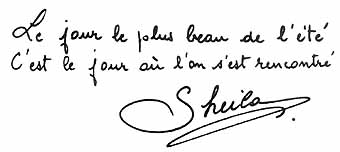 Le jour le plus beau de l'été
C'est le jour où l'on s'est rencontré
Sheila